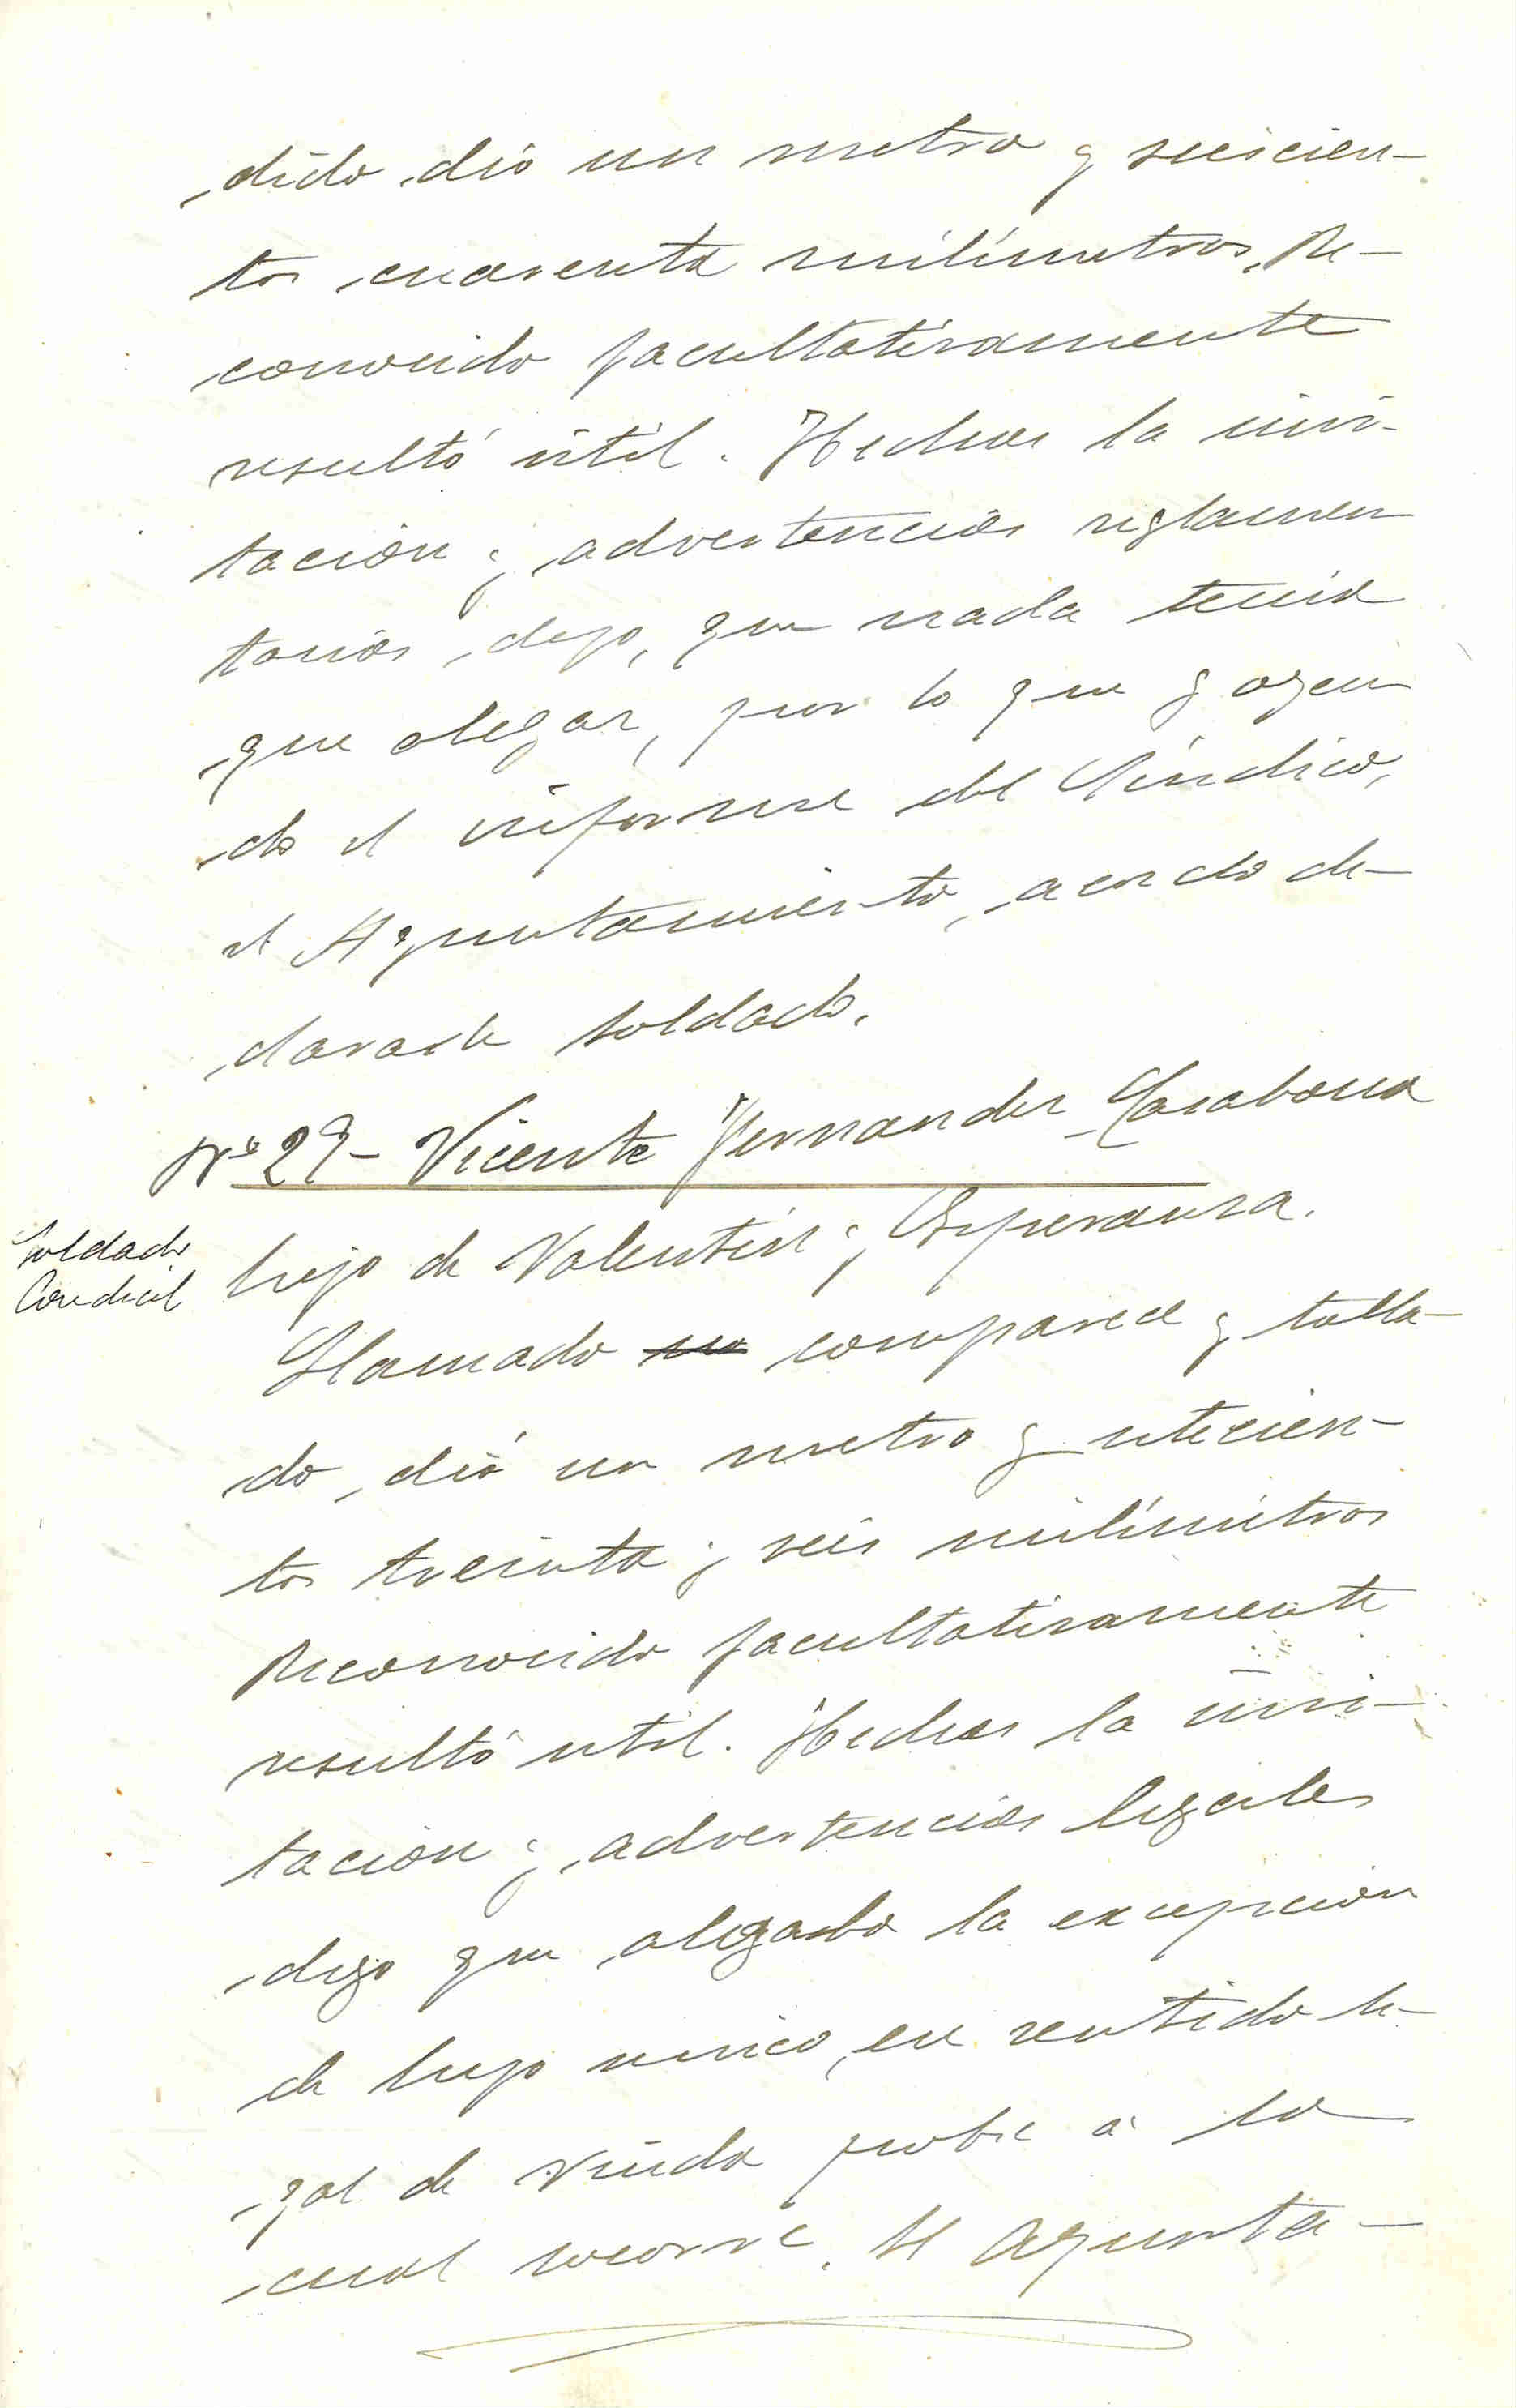 dido dió un metro y seiscien-
tos cuarenta milímetros. Re-
conocido facultativamente
resultó útil. Hechas la invi-
tación y advertencias reglamen
tarias, dijo, que nada tenía
que alegar, por lo que y oyen
do el informe del Síndico,
el Ayuntamiento, acordó de-
clararle soldado.
Nº 29- Vicente Fernandez
Soldado
Condicl
hijo de Valentin y Esperanza.
Llamado no comparece y talla-
do, dió un metro y setecien-
tos treinta y seis milímetros
Reconocido facultativamente
resultó util. Hechas la invi-
tación y advertencias legales
dijo que alegaba la excepción
de hijo unico, en sentido le-
gal de viuda pobre á la
cual socorre. El Ayunta-